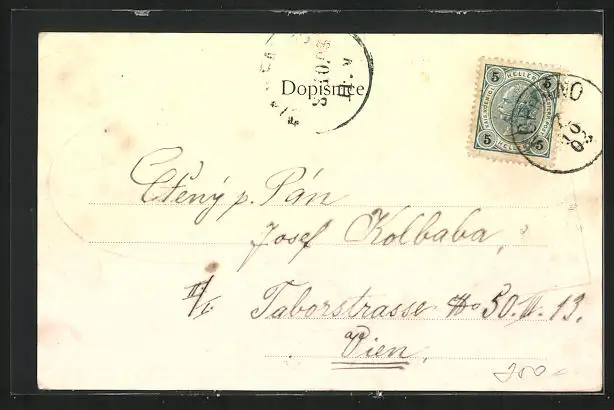 Dopisnice
5 5
HELLER
5 5
HELLER
Ctený p. Pán
Josef Kolbaba,
II/I. Taborstrasse No 50. II. 13.
Vien.
350-